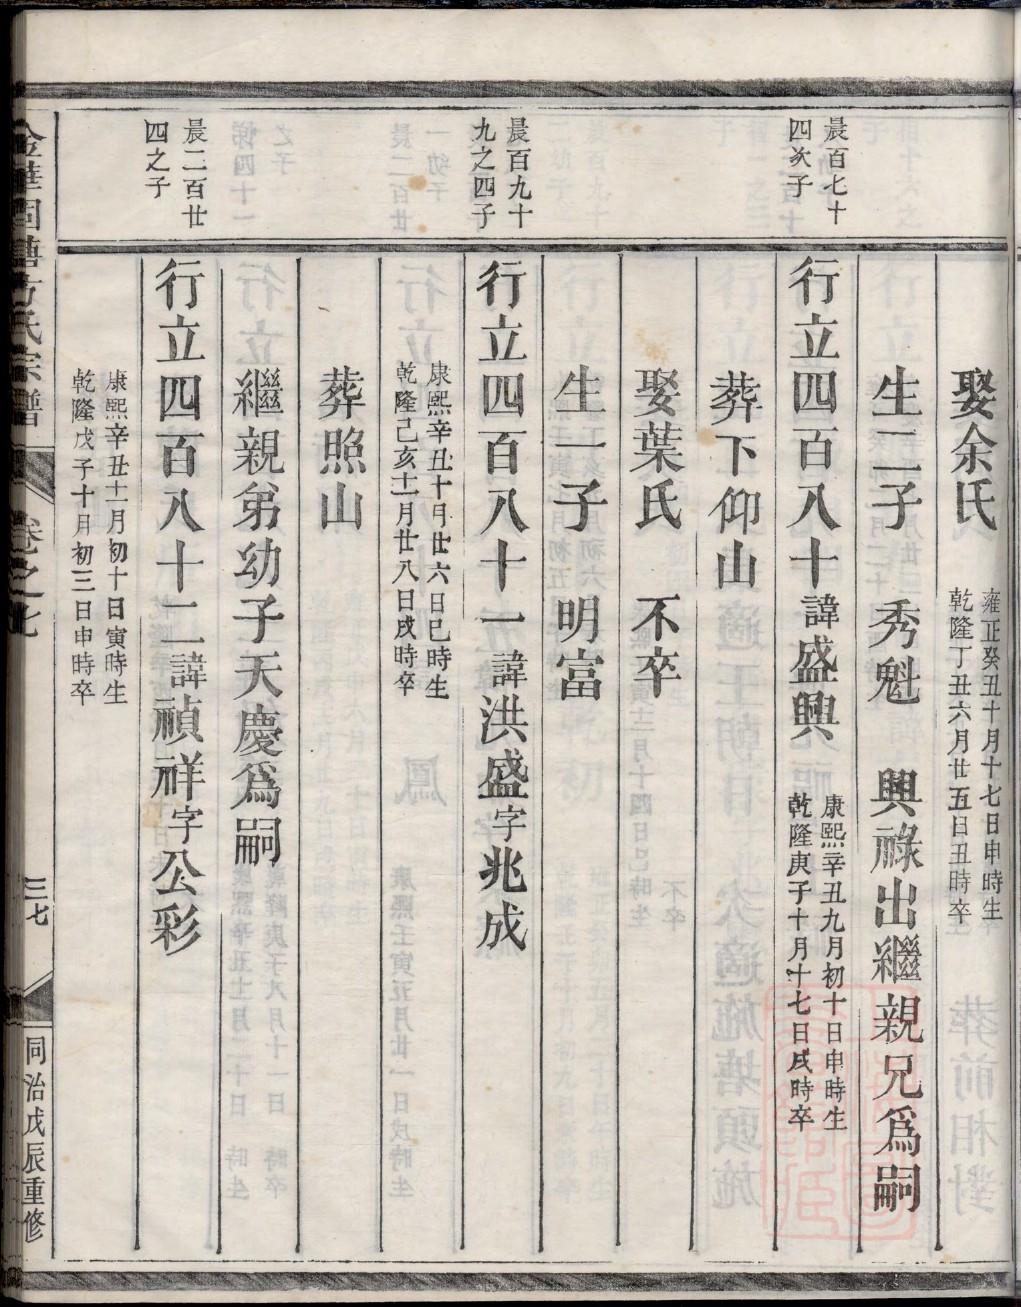 娶余氏
雍正癸丑十月十七日申時生
乾隆丁丑六月廿五日丑時卒
生二子 秀魁 興祿出繼親兄爲嗣
晨百七十
四次子
行立四百八十諱盛興
康熙辛丑九月初十日申時生
乾隆庚子十月十七日戌時卒
葬下仰山
娶葉氏 不卒
生一子 明富
晨百九十
九之四子
行立四百八十一諱洪盛字兆成
康熙辛丑十月廿六日巳時生
乾隆己亥十二月廿八日戌時卒
葬照山
繼親弟幼子天慶爲嗣
晨二百廿
四之子
行立四百八十二諱禎祥字公彩
康熙辛丑十一月初十日寅時生
乾隆戊子十月初三日申時卒
方氏宗譜 卷之七 三七 同治戊辰重修